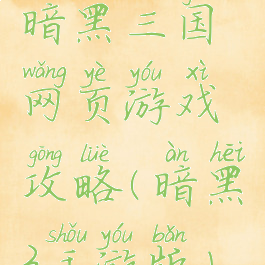 暗黑三国
wǎng yè yóu xì
网页游戏
gōng lüè àn hēi
攻略(暗黑
shǒu yóu bǎn
手游版)